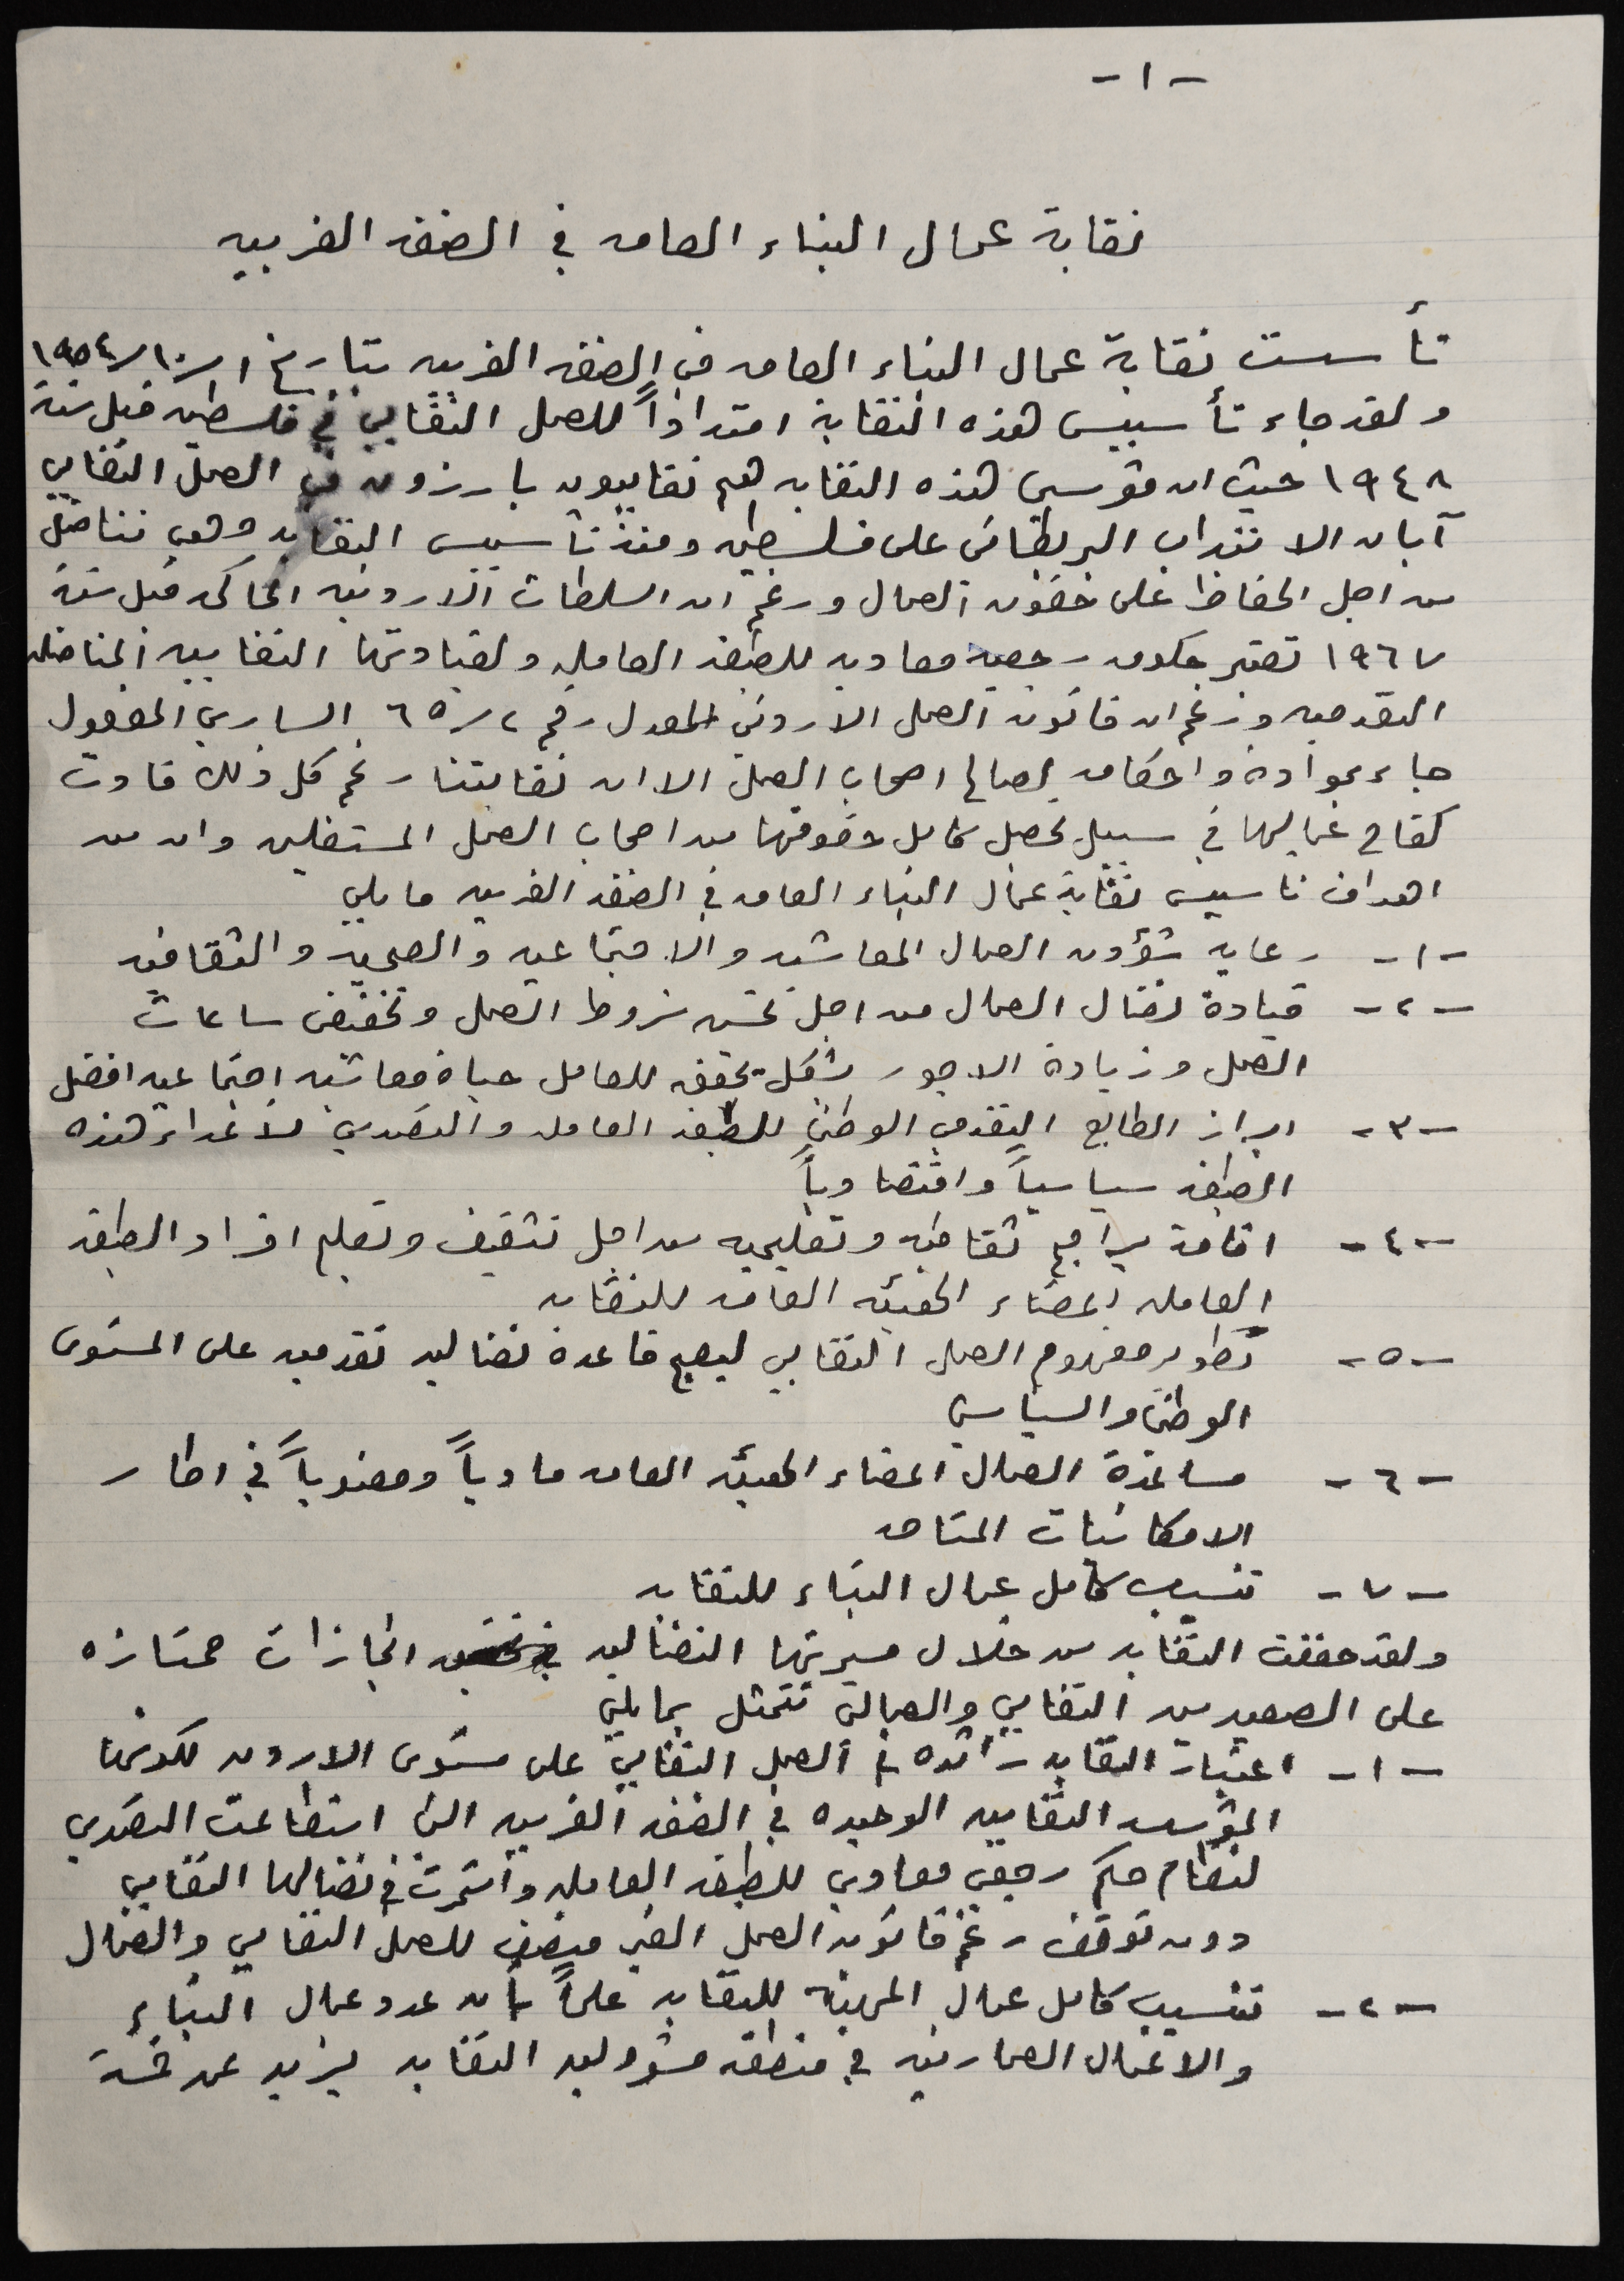 -١-
نقابة عمال البناء العامه في الضفه الغربيه
تأسست نقابة عمال البناء العامه في الضفه الغربيه بتاريخ ١/١٠/١٩٥٤
ولقد جاء تأسيس هذه النقابة امتداداً للعمل النقابي في فلسطين قبل سنة
١٩٤٨ حيث ان مؤسسي هذه النقابه هم نقابيون بارزون في العمل النقابي
آبان الانتداب البريطاني على فلسطين ومنذ تأسيس النقابه وهي تناضل
من اجل الحفاظ على حقوق العمال ورغم ان السلطات الاردنيه الحاكمه قبل سنة
١٩٦٧ تعتبر حكومه رجعيه معاديه للطبقه العامله ولقيادتها النقابيه المناضله
التقدميه ورغم ان قانون العمل الاردني المعدل رقم ٢/٦٥ الساري المفعول
جاء بمواده واحكامه لصالح اصحاب العمل الا ان نقابتنا رغم كل ذلك قادت
كفاح عمالها في سبيل تحصل كامل حقوقها من اصحاب العمل المستغلين وان من
اهداف تاسيس نقابة عمال البناء العامه في الضفه الغربيه ما يلي
-١- رعايه شؤون العمال المعاشيه والاجتماعيه والصحيه والثقافيه
-٢- قيادة نضال العمال من اجل تحسين شروط العمل وتخفيض ساعات
العمل وزيادة الاجور بشكل يحقق للعامل حياة معاشيه اجتماعيه افضل
-٣- ابراز الطابع التقدمي الوطني للطبقه العامله والتصدي لأعداء هذه
الطبقه سياسياً واقتصادياً
-٤- اقامة برامج ثقافيه وتعليميه من اجل تثقيف وتعليم افراد الطبقه
العامله اعضاء الهيئه العامه للنقابه
-٥- تطوير مفهوم العمل النقابي ليصبح قاعدة نضاليه تقدميه على المستوى
الوطني والسياسي
-٦- مساعدة العمال اعضاء الهيئه العامه مادياً ومعنوياً في اطار
الامكانيات المتاحه
-٧- تنسيب كامل عمال البناء للنقابه
ولقد حققت النقابه من خلال مسيرتها النضاليه انجازات ممتازه
على الصعيدين النقابي والعمالي تتمثل بما يلي
-١- اعتبارت النقابه رائده في العمل النقابي على مستوى الاردن لكونها
المؤسسه النقابيه الوحيده في الضفه الغربيه التي استطاعت التصدي
لنظام حكم رجعي معادي للطبقه العامله واستمرت في نضالها النقابي
دون توقف رغم قانون العمل الغير منصف للعمل النقابي والعمال
-٢- تنسيب كامل عمال المهنة للنقابه علماً بأن عدد عمال البناء
والاعمال المعماريه في منطقه مسؤوليه النقابه يزيد عن خمسة